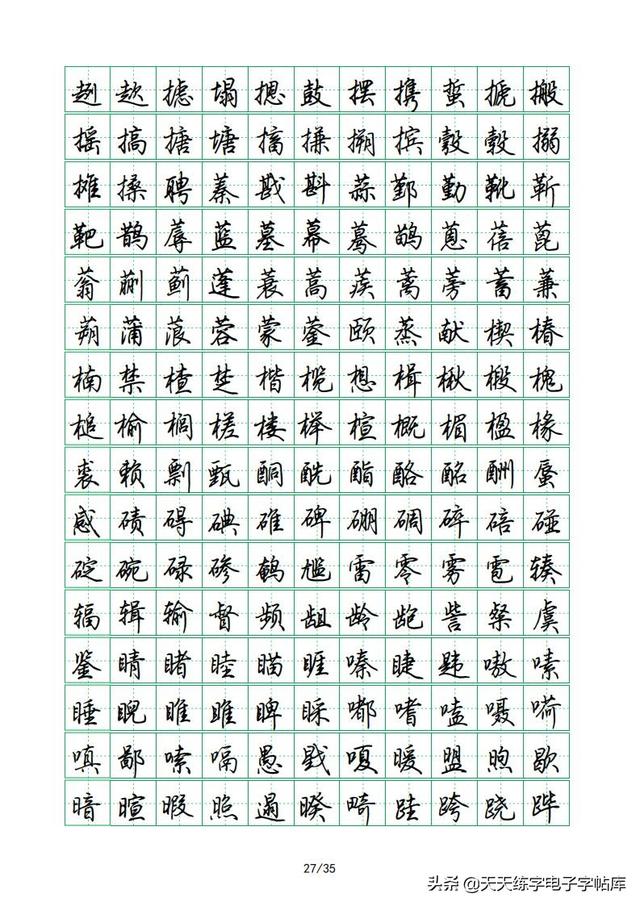 趔趑摅塌摁鼓摆携蜇搋搬
摇搞搪塘搛搠摈彀毂搦
摊搡聘蓁戡斟蒜鄞勤靴靳
靶鹊蓐蓝墓幕蓦鹋蒽蓓蓖
蓊蒯蓟蓬蓑蒿蒺蓠蒡蓄蒹
蒴蒲蒗蓉蒙蓥颐蒸献楔椿
楠禁楂楚楷榄想楫楸椴槐
槌榆榈槎楼榉楦概楣楹椽
裘赖剽甄酮酰酯酪酩酬蜃
感碛碍碘碓碑硼碉碎碚碰
碇碗碌碜鹌尴雷零雾雹辏
辐辑输督频龃龄龅訾粲虞
鉴睛睹睦瞄睚嗪睫韪嗷嗉
睡睨睢雎睥睬嘟嗜嗑嗫嗬
嗔鄙嗦嗝愚戥嗄暖盟煦歇
暗暄暇照遢暌畸跬跨跷跸
27/35
头条 @天天练字电子字帖库